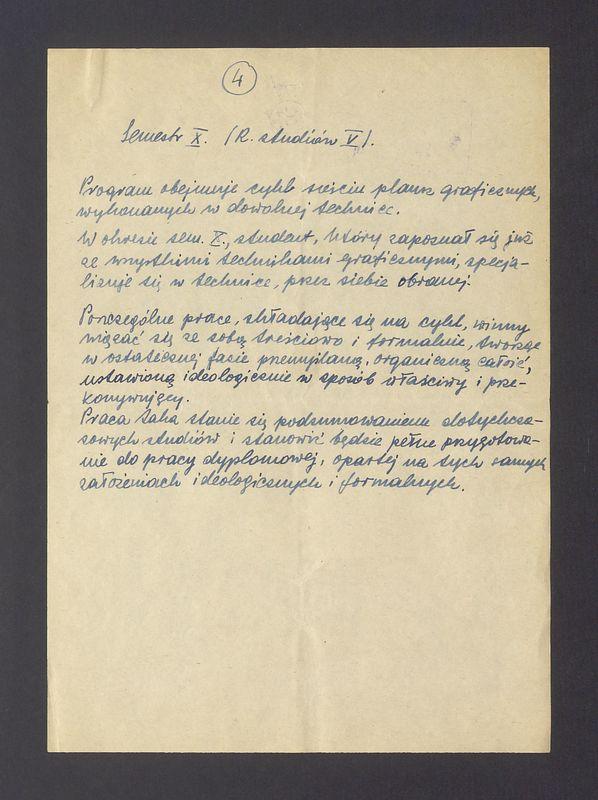 4
Semestr X. (R. studiów V).
Program obejmuje cykl sześciu plansz graficznych,
wykonanych w dowolnej technice.
W okresie sem. X., student, który zapoznał się już
ze wszystkimi technikami graficznymi, specja-
lizuje się w technice, przez siebie obranej.
Poszczególne prace, składające się na cykl, winny
wiązać się ze sobą treściowo i formalnie, tworząc
w ostatecznej fazie przemyślaną, organiczną całość,
ustawioną ideologicznie w sposób właściwy i prze-
konywujący.
Praca taka stanie się podsumowaniem dotychcza-
sowych studiów i stanowić będzie pełne przygotowa-
nie do pracy dyplomowej, opartej na tych samych
założeniach ideologicznych i formalnych.